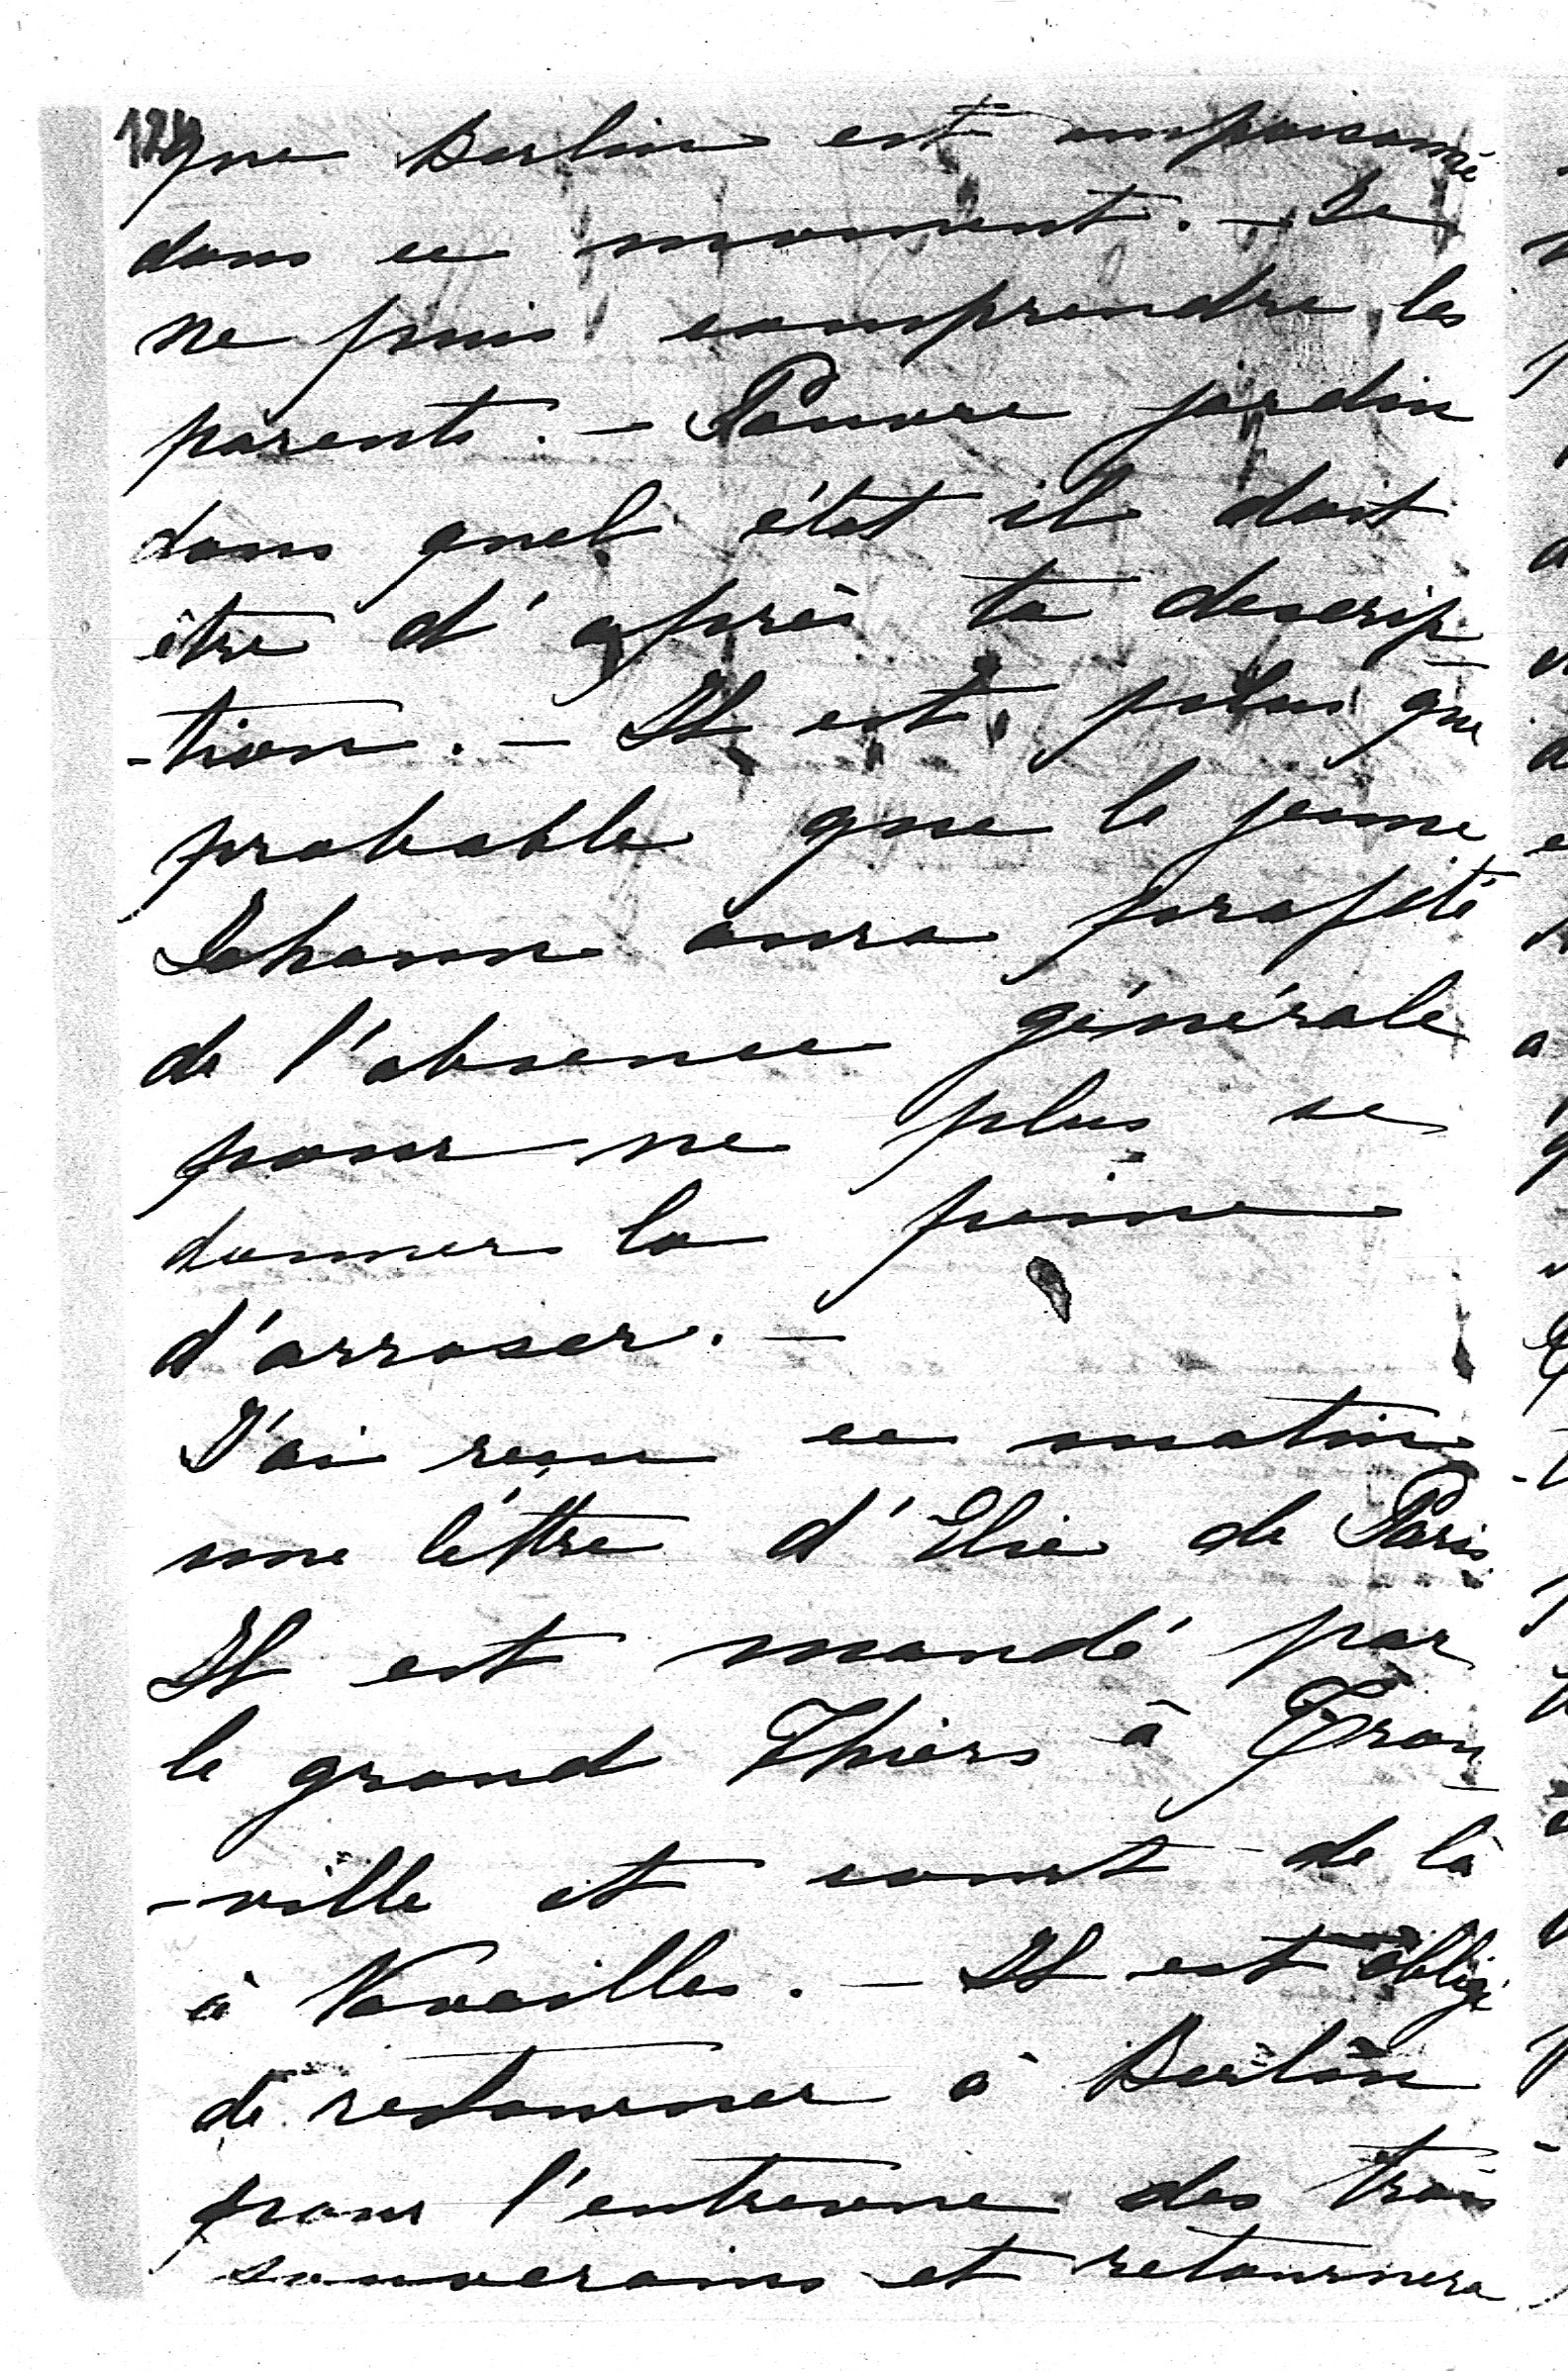 que Berlin est empoisonné
dans ce moment. – Je
ne puis comprendre les
parents. – Pauvre jardin
dans quel état il doit
être d'après ta descrip
-tion. – Il est plus que
probable que le jeune
Johann aura profité
de l'absence générale
pour ne plus se
donner la peine
d'arroser. –
J'ai reçu ce matin
une léttre d'Elie de Paris
Il est mandé par
le grand Thiers à Trou
-ville et court de là
à Navailles. – Il est obligé
de retourner à Berlin
pour l'entrevue des trois
souverains et retournera